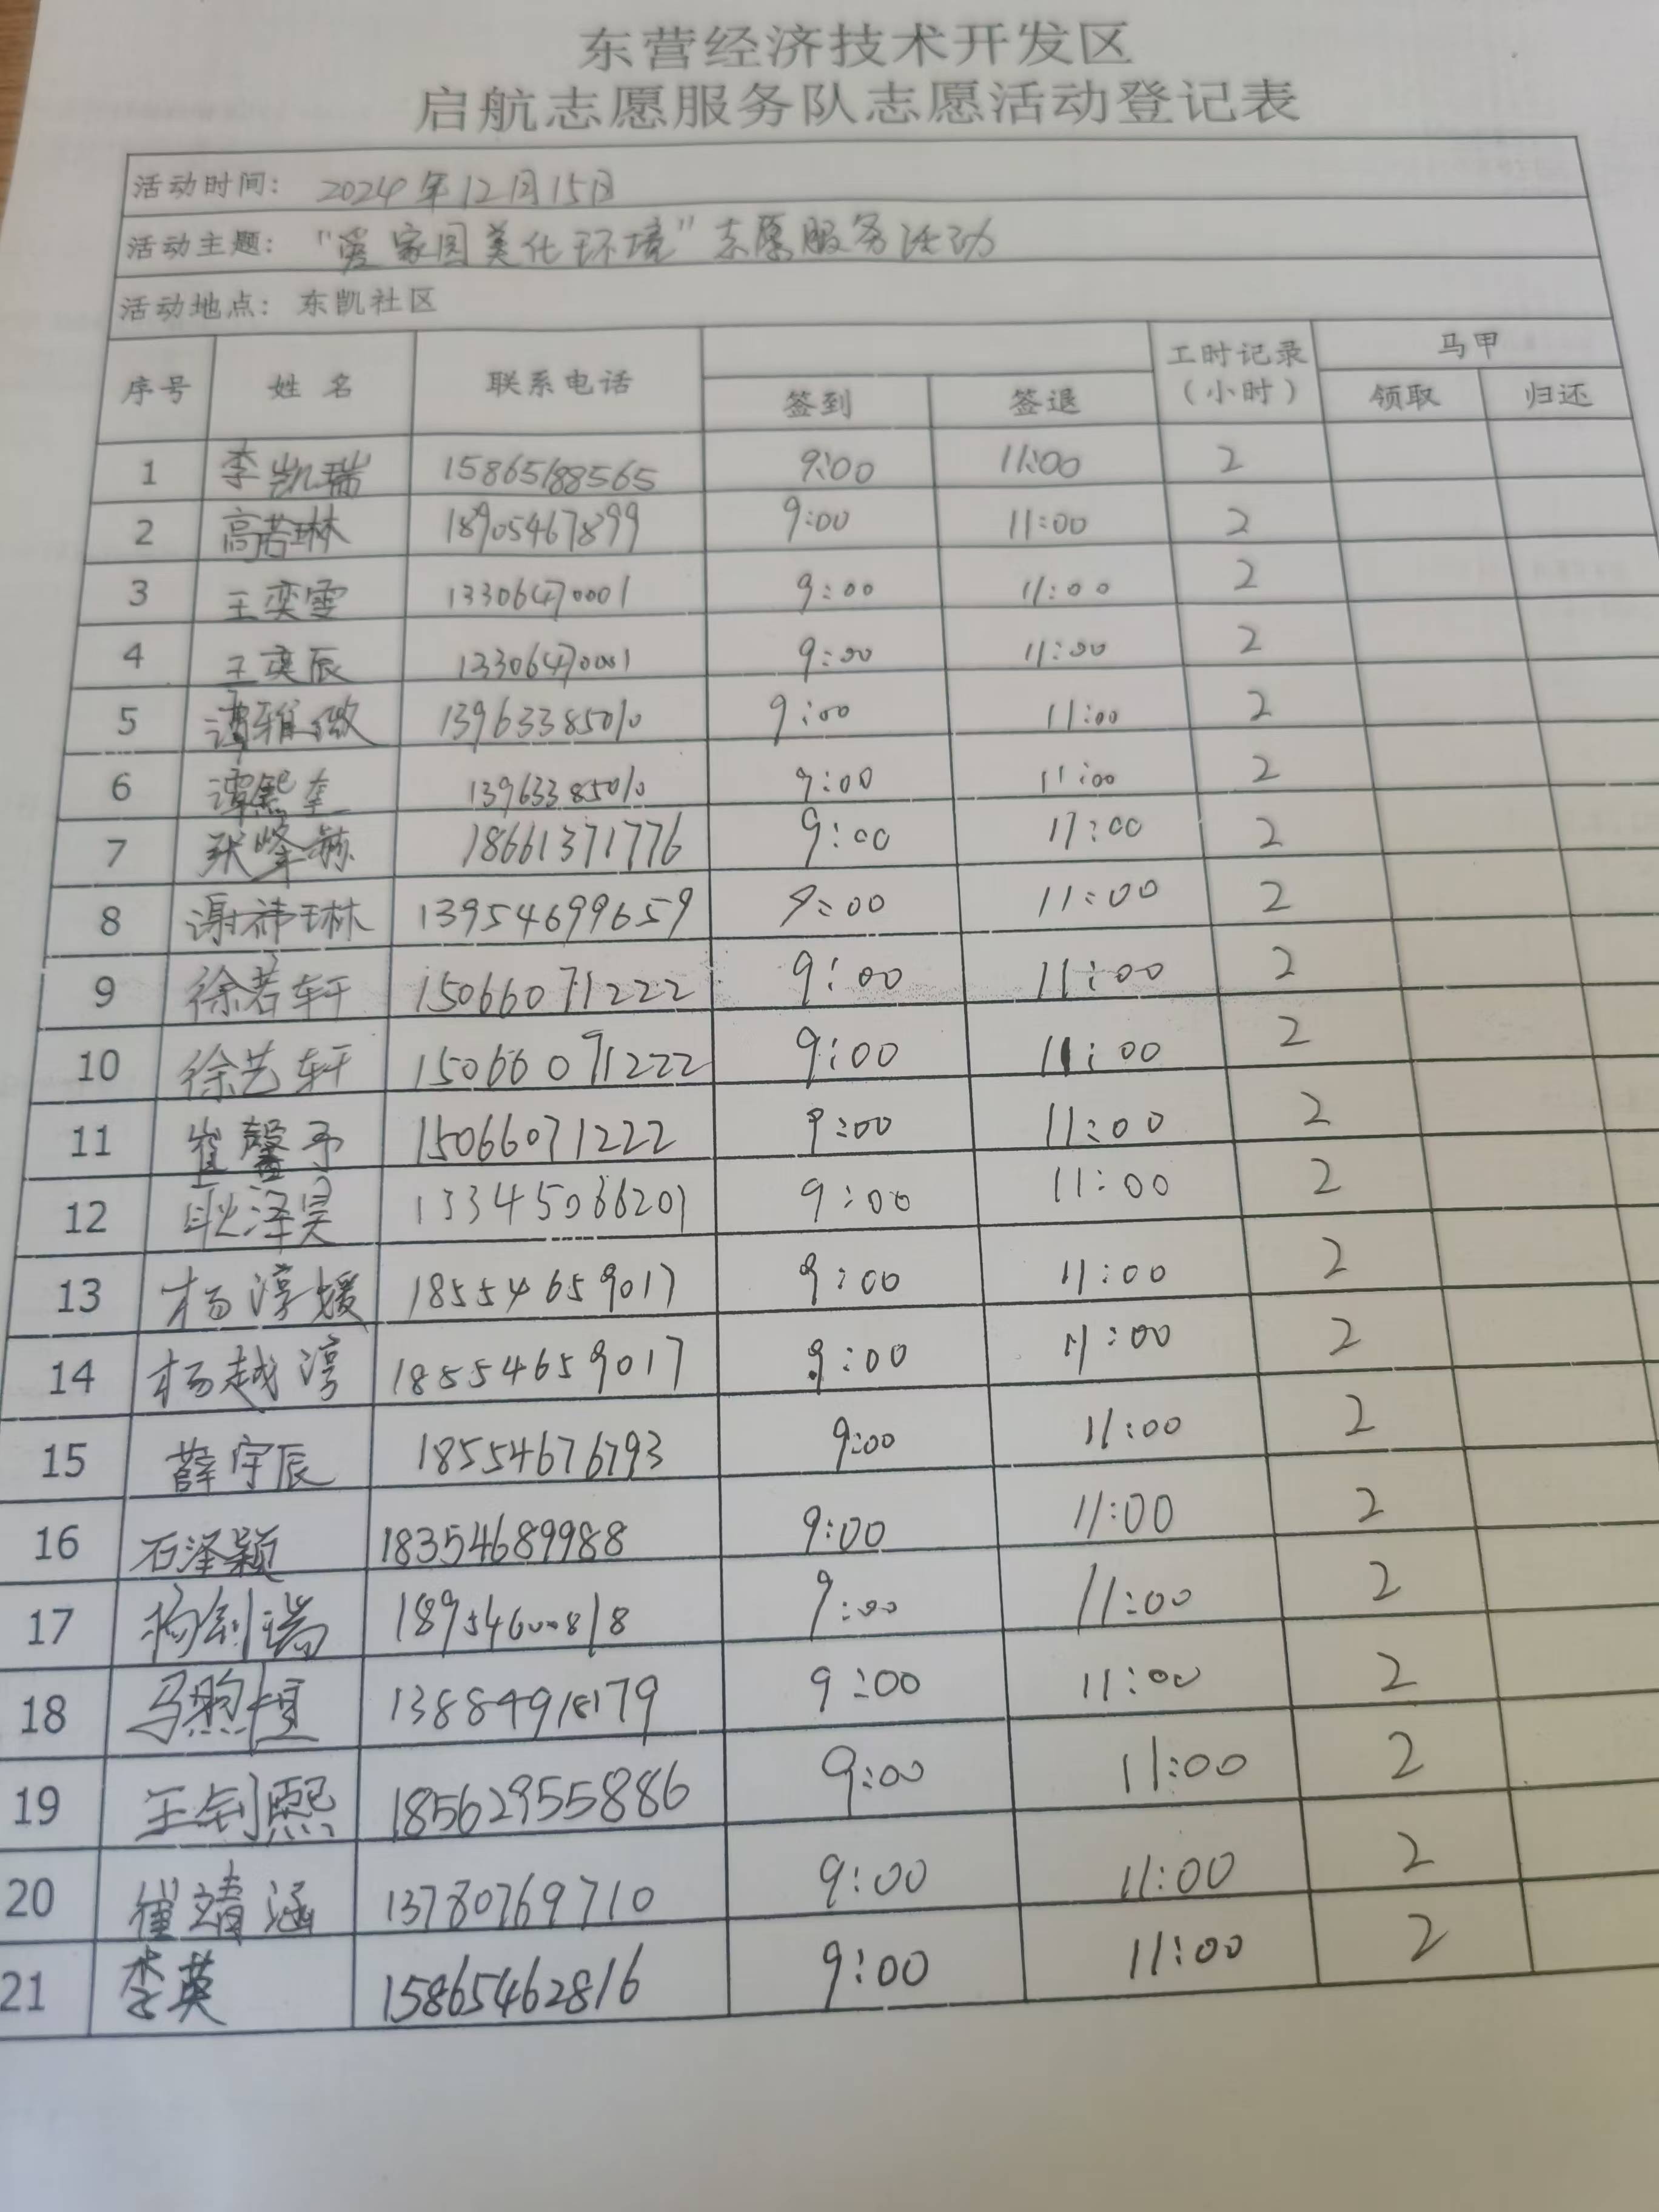 东营经济技术开发区
启航志愿服务队志愿活动登记表
活动时间： 2024年12月15日
活动主题： "爱家园美化环境"志愿服务活动
活动地点： 东凯社区
序号 姓名 联系电话 签到 签退 工时记录（小时） 马甲 领取 归还
1 李凯瑞 15865188565 9:00 11:00 2
2 高若琳 18905467899 9:00 11:00 2
3 王奕雯 13306470001 9:00 11:00 2
4 王奕辰 13306470001 9:00 11:00 2
5 谭雅微 13963385010 9:00 11:00 2
6 谭熙奎 13963385010 9:00 11:00 2
7 张峰赫 18661371776 9:00 11:00 2
8 谢祎琳 13954699659 9:00 11:00 2
9 徐若轩 15066071222 9:00 11:00 2
10 徐艺轩 15066071222 9:00 11:00 2
11 崔馨予 15066071222 9:00 11:00 2
12 耿泽昊 13345066201 9:00 11:00 2
13 杨淳媛 18554659017 9:00 11:00 2
14 杨越淳 18554659017 9:00 11:00 2
15 薛宇辰 18554676793 9:00 11:00 2
16 石泽颖 18354689988 9:00 11:00 2
17 杨钊瑞 18954600818 9:00 11:00 2
18 马煦恒 13884918179 9:00 11:00 2
19 王钊熙 18562955886 9:00 11:00 2
20 崔靖涵 13780769710 9:00 11:00 2
21 李英 15865462816 9:00 11:00 2